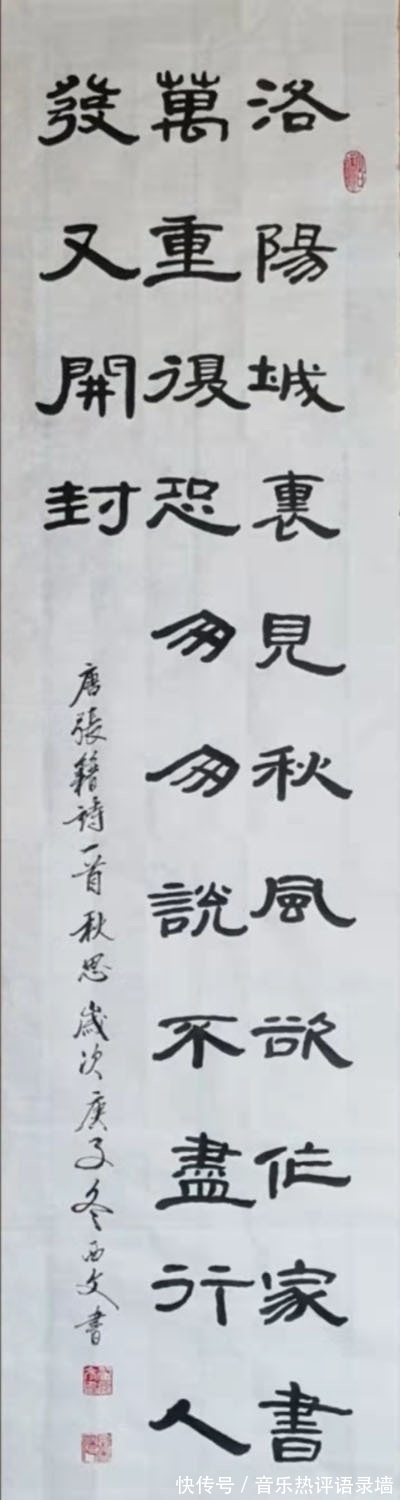 洛陽城裏見秋風欲作家書
萬重復恐匆匆說不盡行人
發又開封
唐張籍詩一首秋思歲次庚子冬西文書
快传号 / 音乐热评语录墙